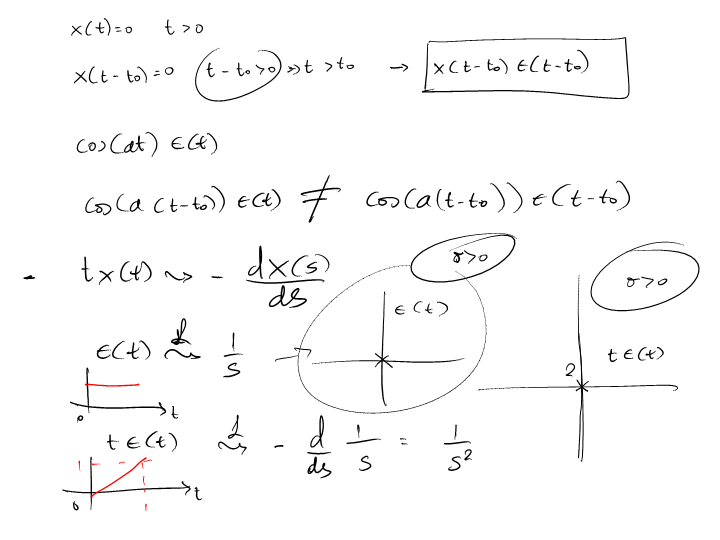 x(t)=0 t>0
x(t-to)=0 t-to>0 » t>to → x(t-to) ε(t-to)
cos(at) ε(t)
cos(a(t-to)) ε(t) ≠ cos(a(t-to)) ε(t-to)
- t x(t) ⇝ - dX(s)/ds
σ>0
σ>0
ε(t) ⇝ℒ 1/s → ε(t)
2 t ε(t)
0 t
t ε(t) ⇝ℒ - d/ds 1/s = 1/s²
1
0 1 t